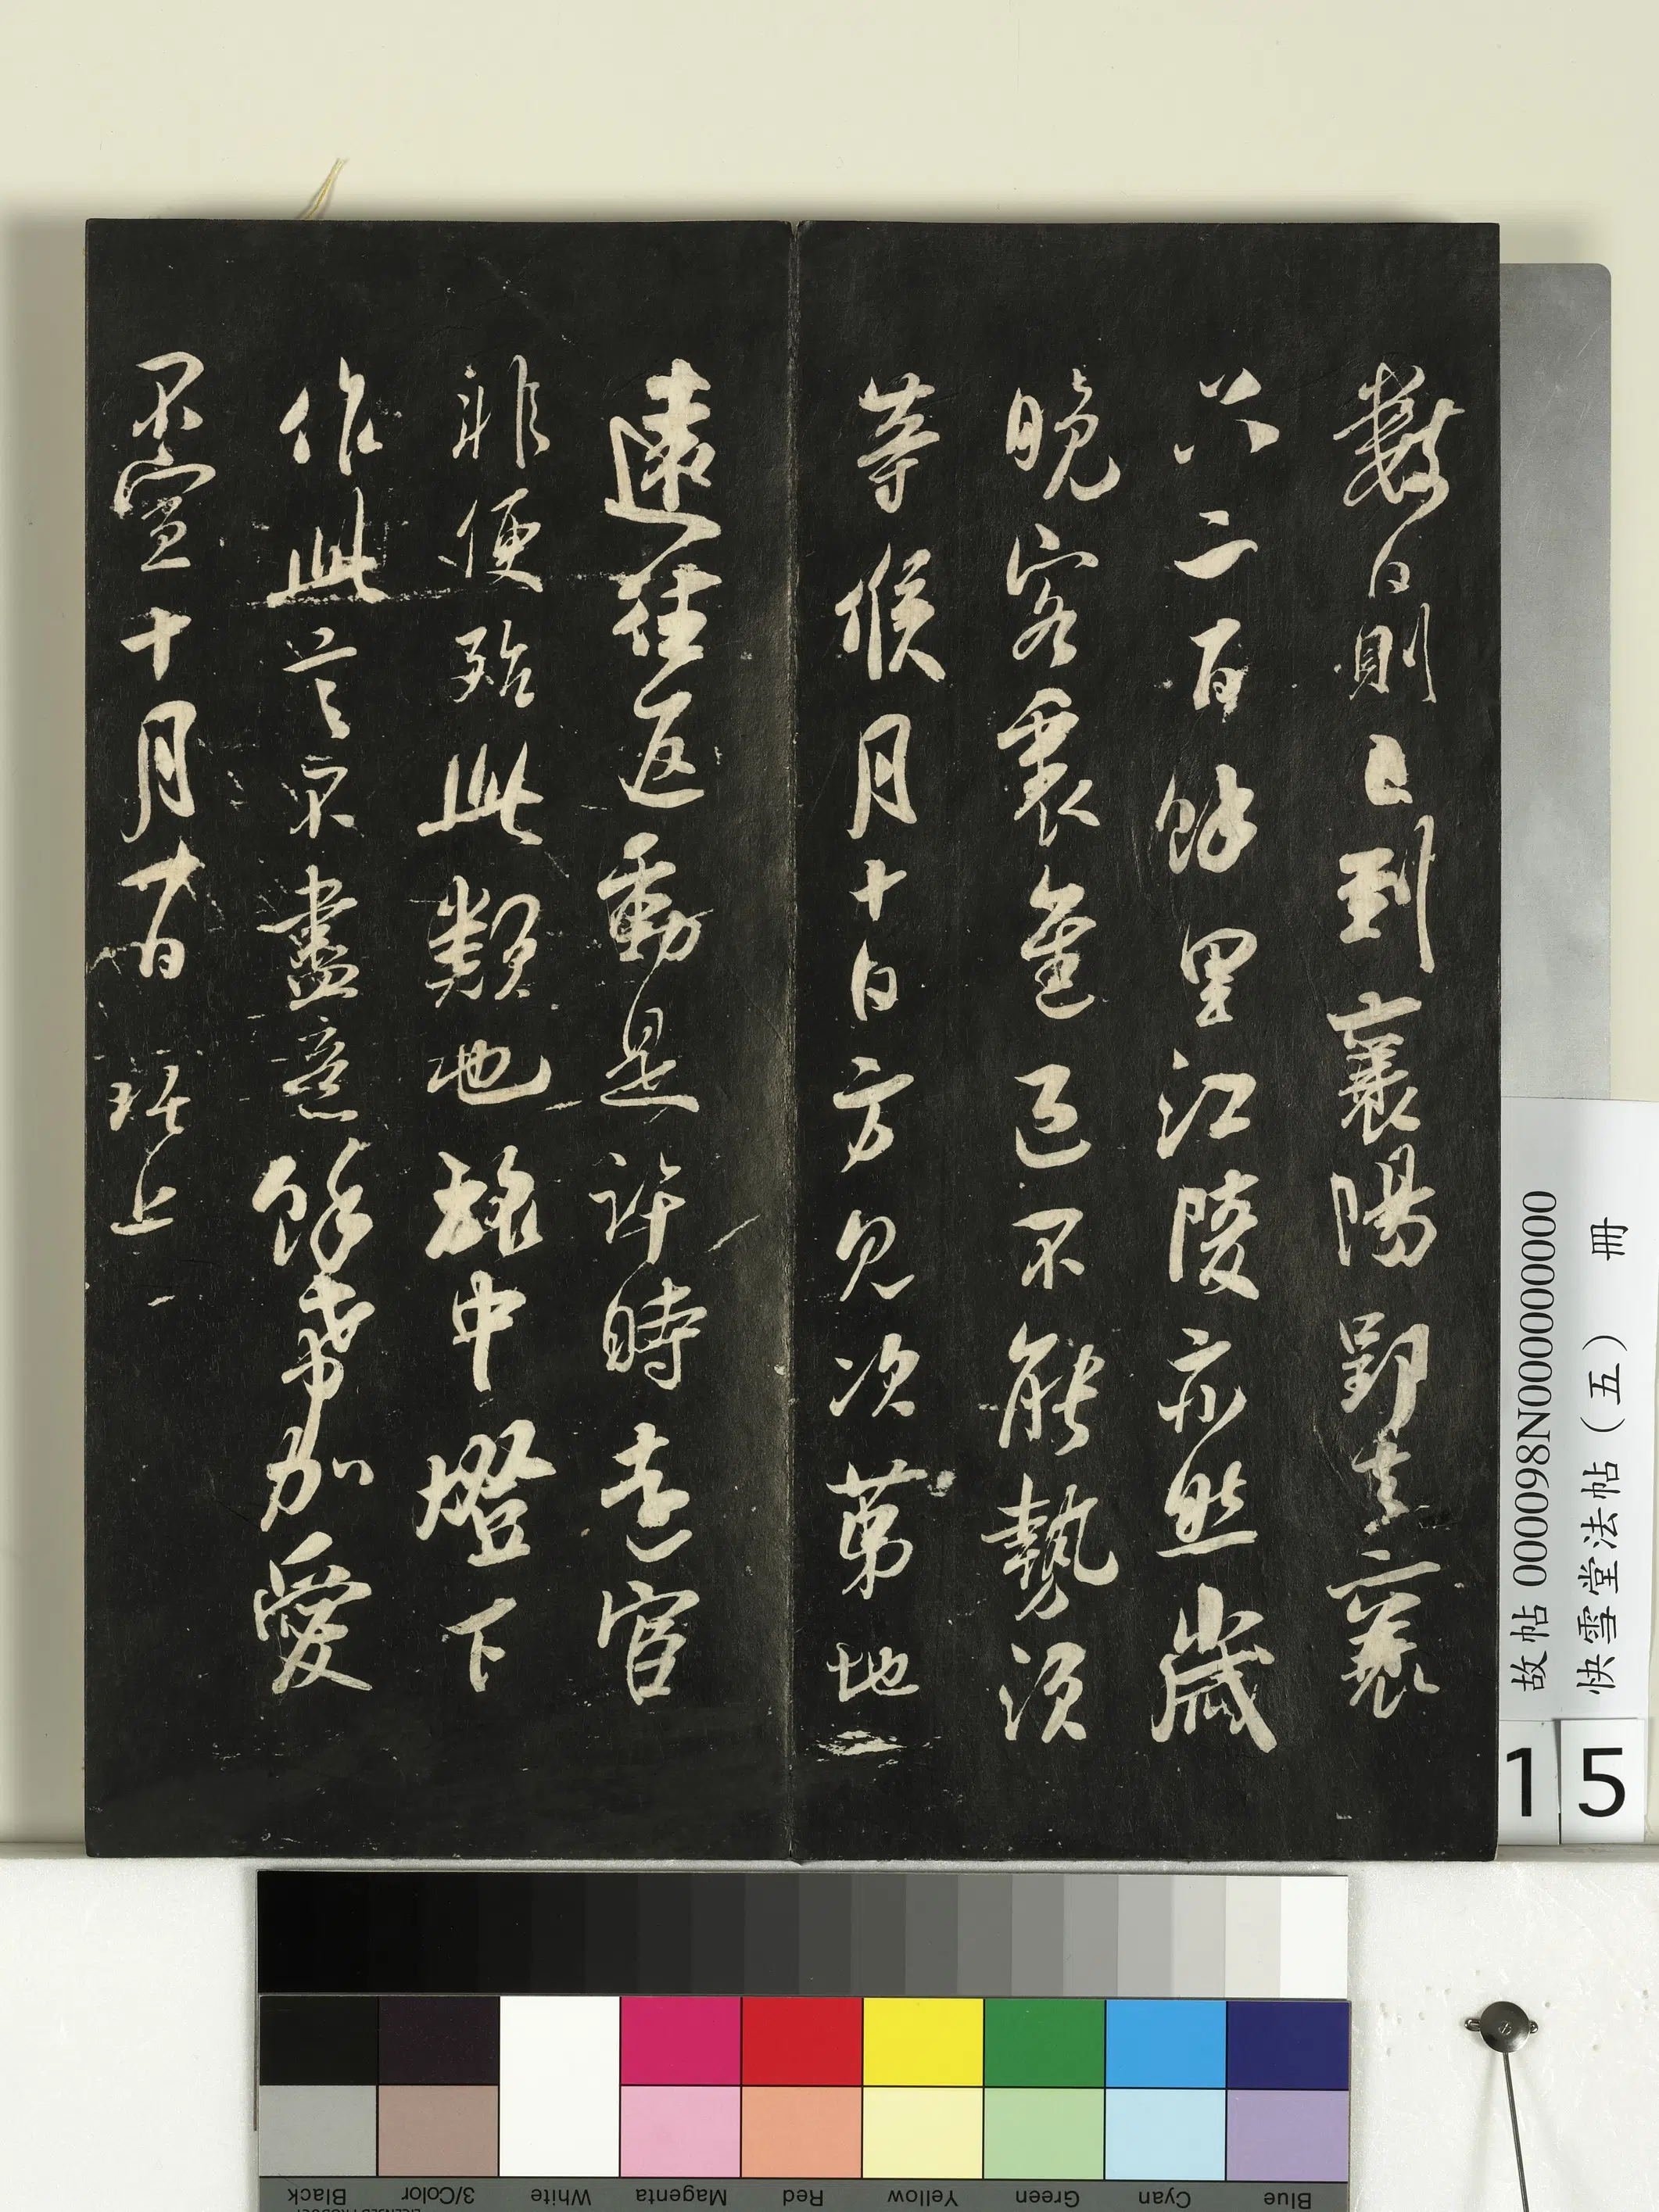 數日則已到襄陽郢去襄
只二百餘里江陵亦然歲
晚客裏無色已不能勢須
等候月十日方見次第地
遠往返動是許時遠官
非便殆此類也旅中燈下
作此草草不盡意餘希加愛
不宣十月廿日 上
故帖 000098N000000000
快雪堂法帖（五） 冊
15
Black
3/Color
White
Magenta
Red
Yellow
Green
Cyan
Blue